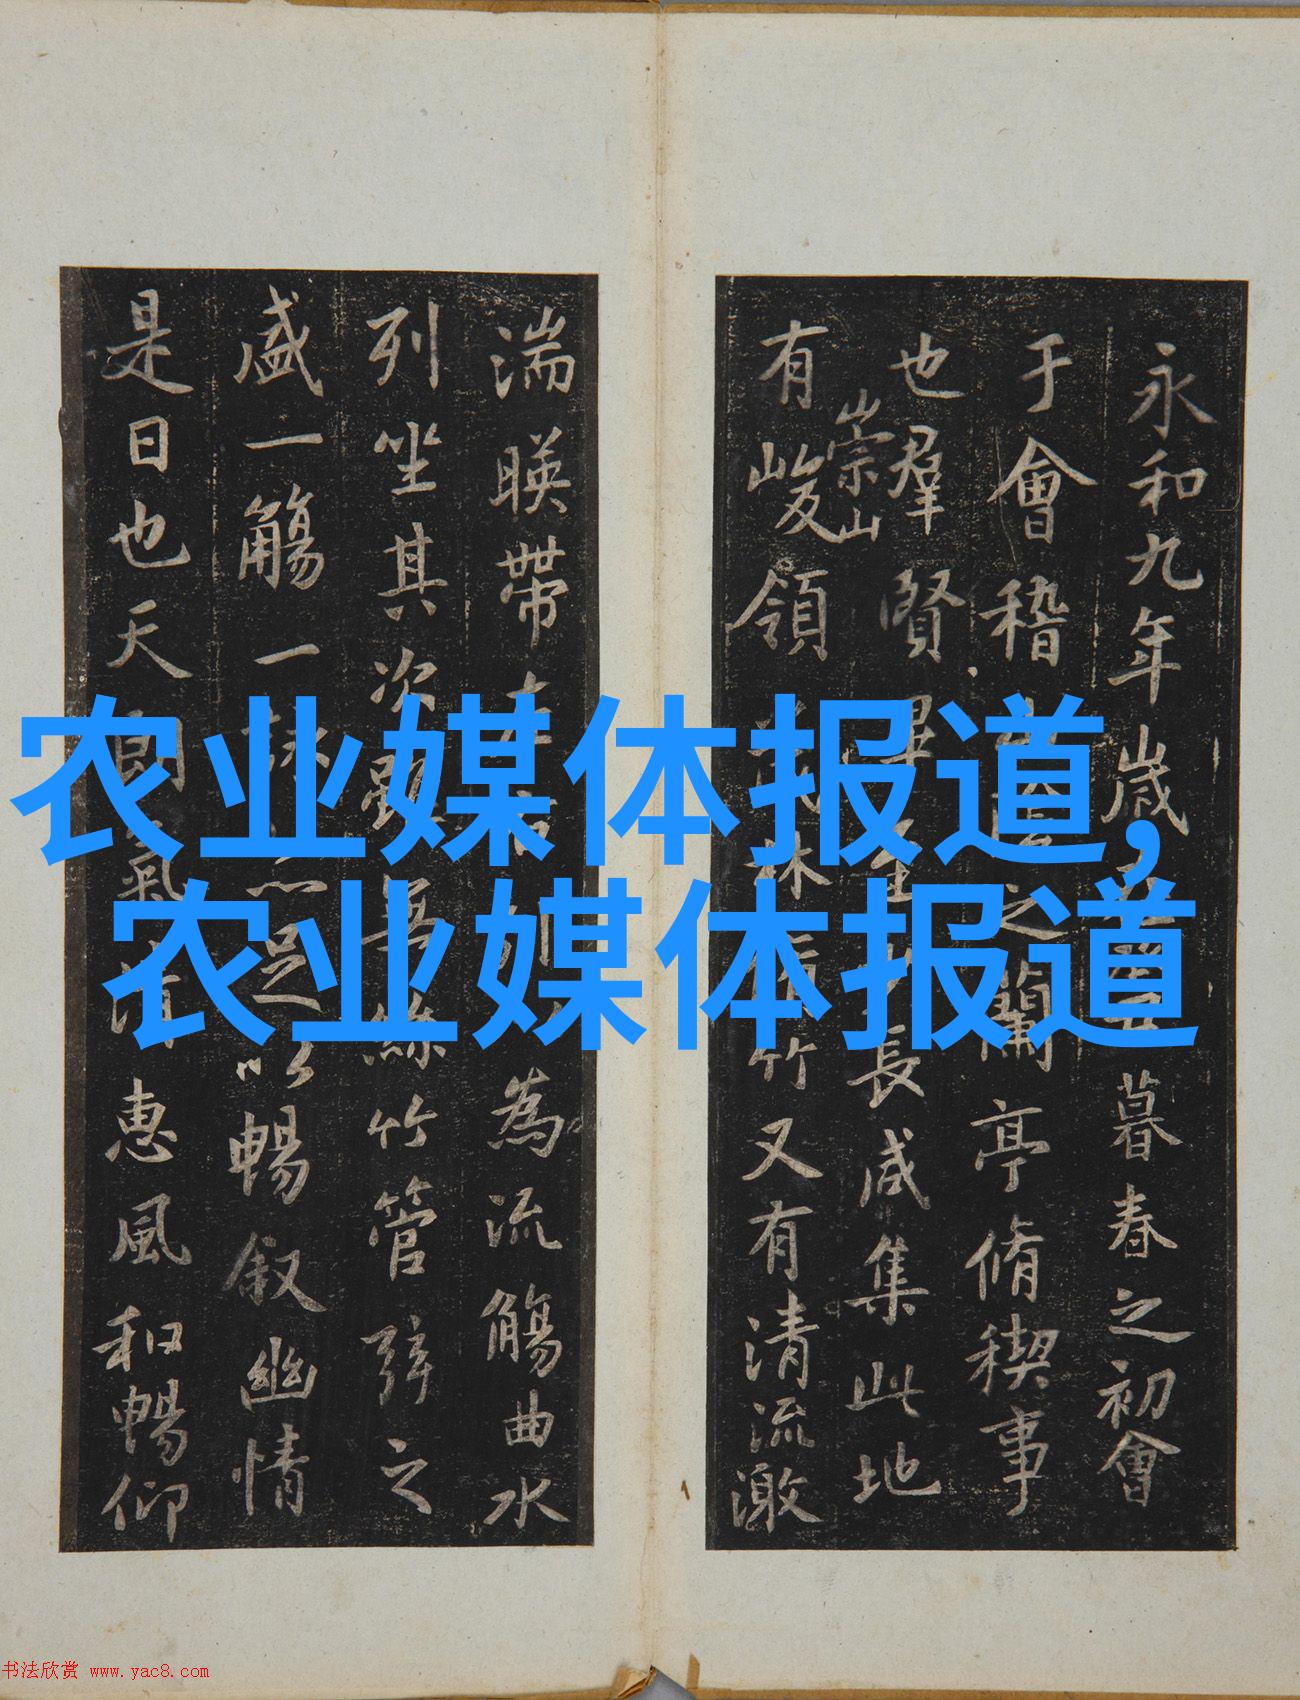 农业媒体报道,
农业媒体报道
永和九年歲暮春之初會
于會稽之蘭亭脩禊事
也羣賢畢至長咸集此地
崇山
有峻領林竹又有清流激
湍暎帶為流觴曲水
列坐其次雖絲竹管弦之
盛一觴一詠足以暢叙幽情
是日也天朗氣清惠風和暢仰
书法欣赏 www.yac8.com